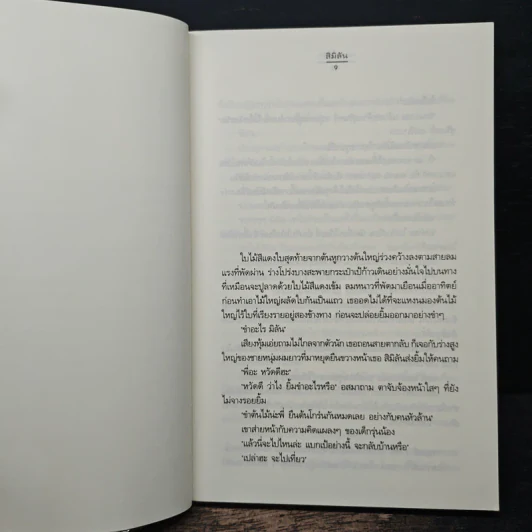 สิมิลัน
๑
ใบไม้สีแดงใบสุดท้ายจากต้นหูกวางต้นใหญ่ร่วงคว้างลงตามสายลม
แรงที่พัดผ่าน ร่างโปร่งบางสะพายกระเป๋าเป้ก้าวเดินอย่างมั่นใจไปบนทาง
ที่เหมือนจะปูลาดด้วยใบไม้สีแดงเข้ม ลมหนาวที่พัดมาเยือนเมื่ออาทิตย์
ก่อนทำเอาไม้ใหญ่ผลัดใบกันเป็นแถว เธออดไม่ได้ที่จะแหงนมองต้นไม้
ใหญ่ไร้ใบที่เรียงรายอยู่สองข้างทาง ก่อนจะปล่อยยิ้มออกมาอย่างขำๆ
"ขำอะไร มิลัน"
เสียงทุ้มเอ่ยถามไม่ไกลจากตัวนัก เธอถอนสายตากลับ ก็เจอกับร่างสูง
ใหญ่ของชายหนุ่มผมยาวที่มาหยุดยืนขวางหน้าเธอ สิมิลันส่งยิ้มให้คนถาม
"พี่อะ หวัดดีฮะ"
"หวัดดี ว่าไง ยิ้มขำอะไรหรือ" อสมาถาม ตาจับจ้องหน้าใสๆ ที่ยัง
ไม่จางรอยยิ้ม
"ขำต้นไม้น่ะพี่ ยืนต้นโกร๋นกันหมดเลย อย่างกับคนหัวล้าน"
เขาส่ายหน้ากับความคิดแผลงๆ ของเด็กรุ่นน้อง
"แล้วนี่จะไปไหนล่ะ แบกเป้อย่างนี้ จะกลับบ้านหรือ"
"เปล่าฮะ จะไปเที่ยว"